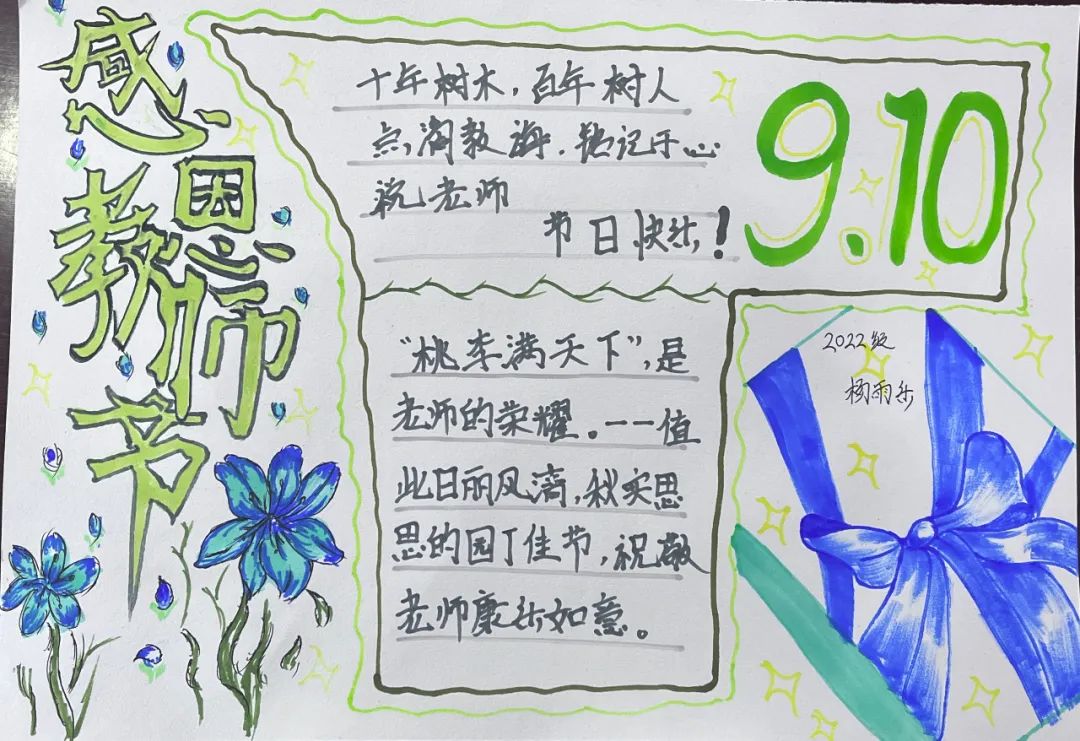 感恩
教师
节
十年树木，百年树人
点滴教诲．铭记于心
祝老师
节日快乐！
9.10
“桃李满天下”，是
老师的荣耀。——值
此日丽风清，秋实思
思的园丁佳节，祝敬
老师康乐如意。
2022级
杨雨乐